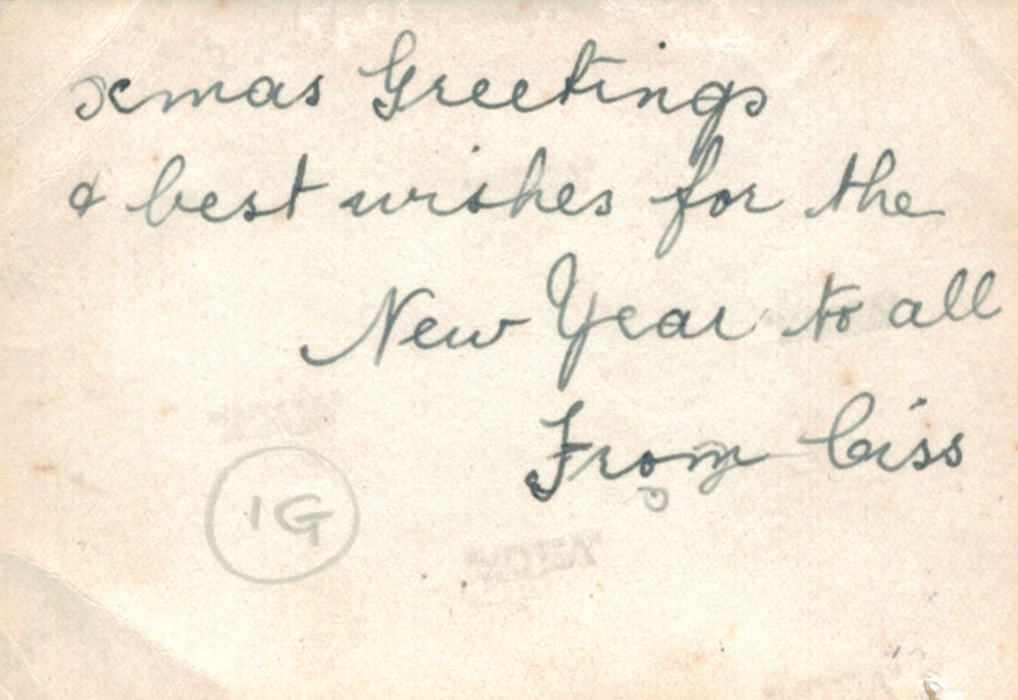 xmas Greetings
& best wishes for the
New Year to all
From Ciss
1G